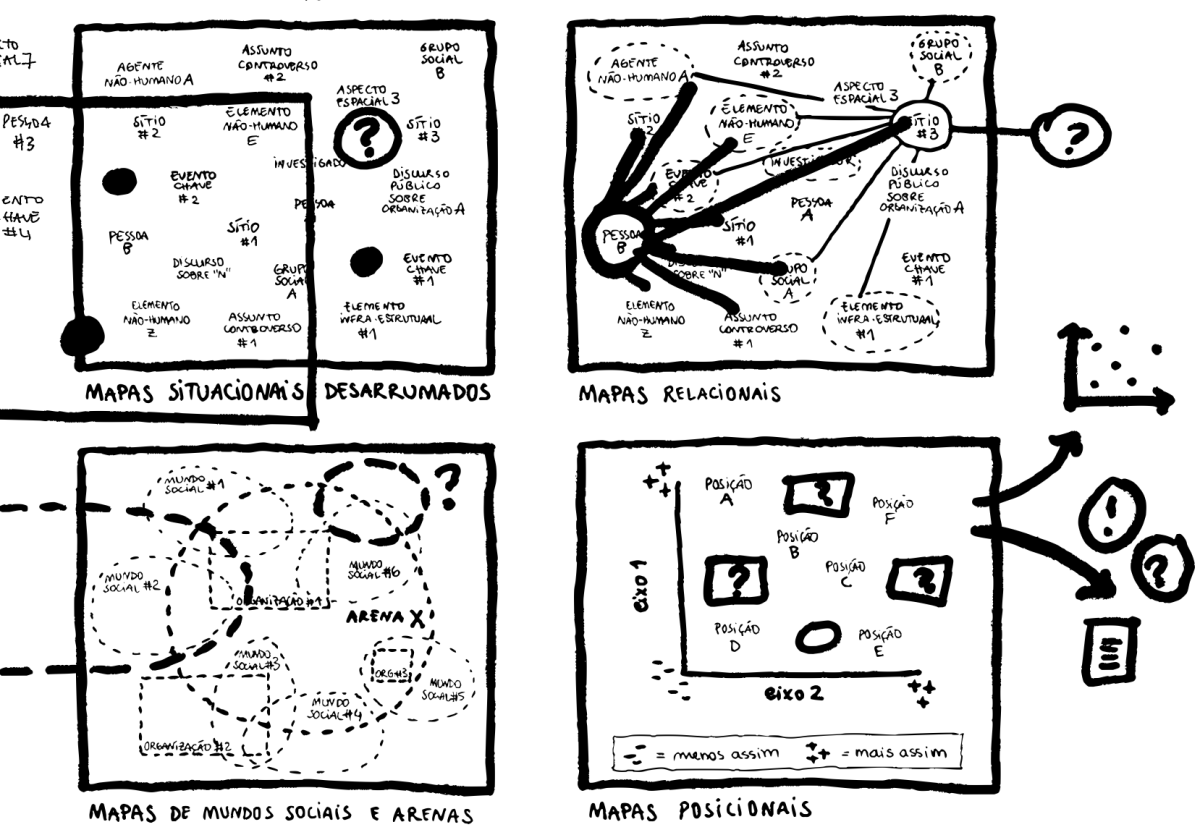 PESSOA
#3
#4
AGENTE
NÃO-HUMANO A
ASSUNTO
CONTROVERSO
#2
GRUPO
SOCIAL
B
SÍTIO
#2
ELEMENTO
NÃO-HUMANO
E
ASPECTO
ESPACIAL 3
?
SÍTIO
#3
EVENTO
CHAVE
#2
DISCURSO
PÚBLICO
SOBRE
ORGANIZAÇÃO A
PESSOA
PESSOA
B
SÍTIO
#1
DISCURSO
SOBRE "N"
GRUPO
SOCIAL
A
EVENTO
CHAVE
#1
ELEMENTO
NÃO-HUMANO
Z
ASSUNTO
CONTROVERSO
#1
ELEMENTO
INFRA-ESTRUTURAL
#1
MAPAS SITUACIONAIS DESARRUMADOS
AGENTE
NÃO-HUMANO A
ASSUNTO
CONTROVERSO
#2
GRUPO
SOCIAL
B
SÍTIO
#2
ELEMENTO
NÃO-HUMANO
E
ASPECTO
ESPACIAL 3
SÍTIO
#3
?
EVENTO
CHAVE
#2
INVESTIGADOR
DISCURSO
PÚBLICO
SOBRE
ORGANIZAÇÃO A
PESSOA
B
PESSOA
A
SÍTIO
#1
DISCURSO
SOBRE "N"
GRUPO
SOCIAL
A
EVENTO
CHAVE
#1
ELEMENTO
NÃO-HUMANO
Z
ASSUNTO
CONTROVERSO
#1
ELEMENTO
INFRA-ESTRUTURAL
#1
MAPAS RELACIONAIS
MUNDO
SOCIAL #1
?
MUNDO
SOCIAL #2
MUNDO
SOCIAL #6
ORGANIZAÇÃO #1
ARENA X
MUNDO
SOCIAL #3
ORG #3
MUNDO
SOCIAL #5
MUNDO
SOCIAL #4
ORGANIZAÇÃO #2
MAPAS DE MUNDOS SOCIAIS E ARENAS
POSIÇÃO
A
?
POSIÇÃO
F
POSIÇÃO
B
?
POSIÇÃO
C
?
POSIÇÃO
D
POSIÇÃO
E
eixo 1
eixo 2
= menos assim
= mais assim
!
?
MAPAS POSICIONAIS